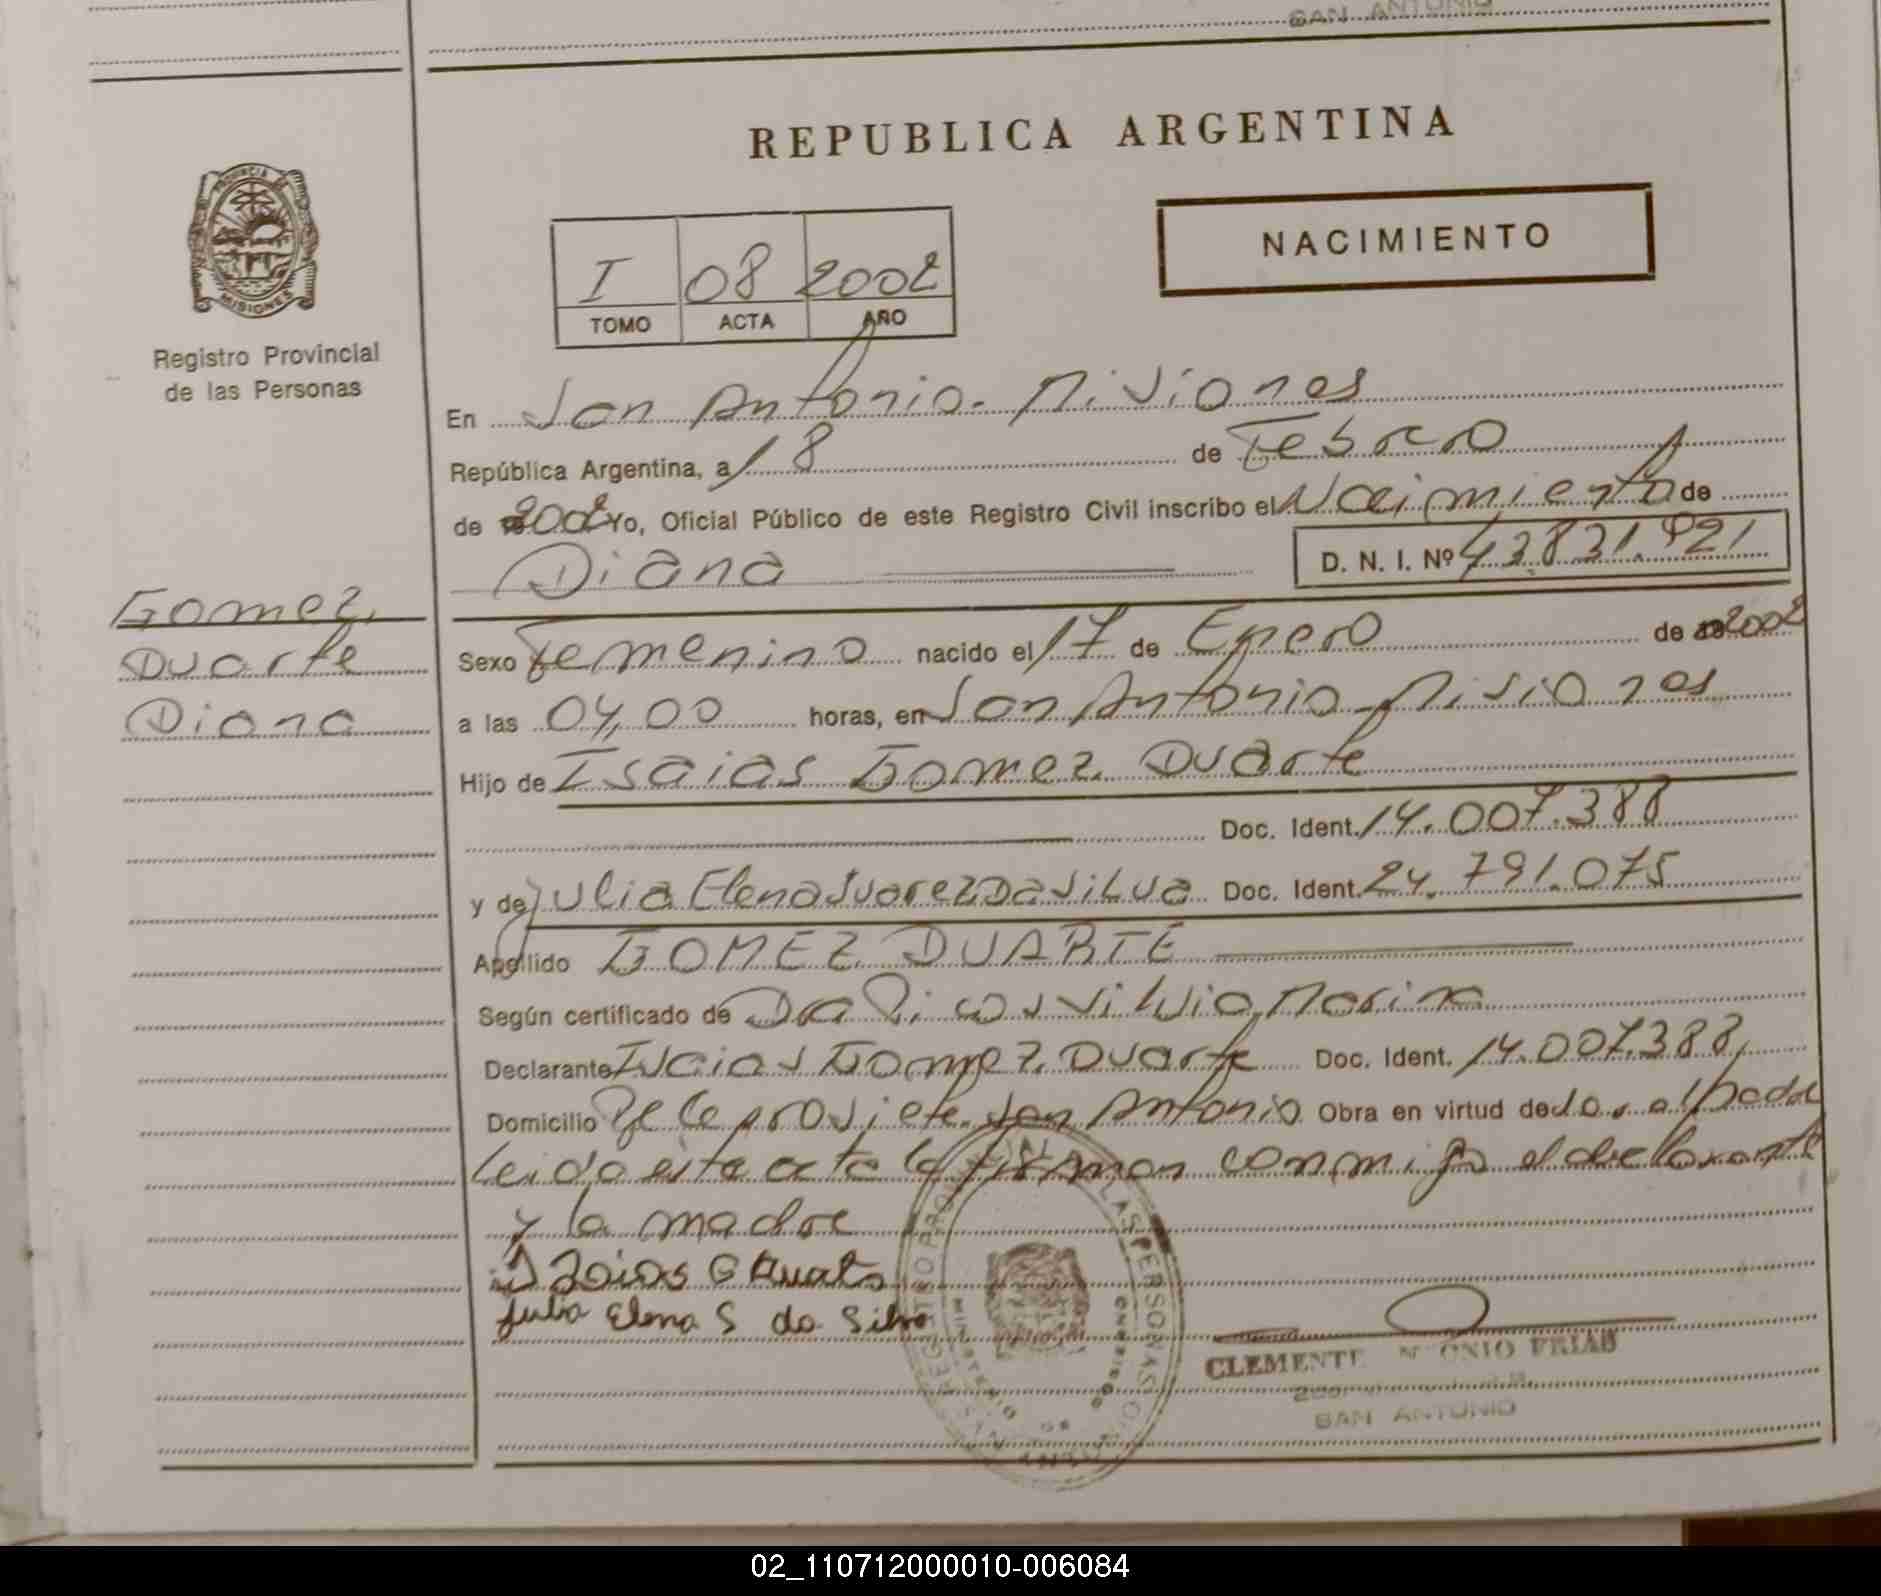 SAN ANTONIO
REPUBLICA ARGENTINA
NACIMIENTO
PROVINCIA DE
MISIONES
Registro Provincial
de las Personas
I 08 2002
TOMO ACTA AÑO
En San Antonio - Misiones
República Argentina, a 18 de Febrero
de 2002 Yo, Oficial Público de este Registro Civil inscribo el Nacimiento de
Diana D. N. I. Nº 43.831.921
Gomez
Duarte
Diana
Sexo Femenino nacido el 17 de Enero de 2002
a las 04,00 horas, en San Antonio - Misiones
Hijo de Isaias Gomez Duarte
Doc. Ident. 14.007.388
y de Julia Elena Suarez Da Silva Doc. Ident. 24.791.075
Apellido GOMEZ DUARTE
Según certificado de Dra Silvia Maria
Declarante Isaias Gomez Duarte Doc. Ident. 14.007.388,
Domicilio San Antonio Obra en virtud de
Leida esta acta la firman conmigo el declarante
y la madre
Isaias G Duarte
Julia Elena S da Silva
CLEMENTE ANTONIO FRIAS
SAN ANTONIO
02_110712000010-006084